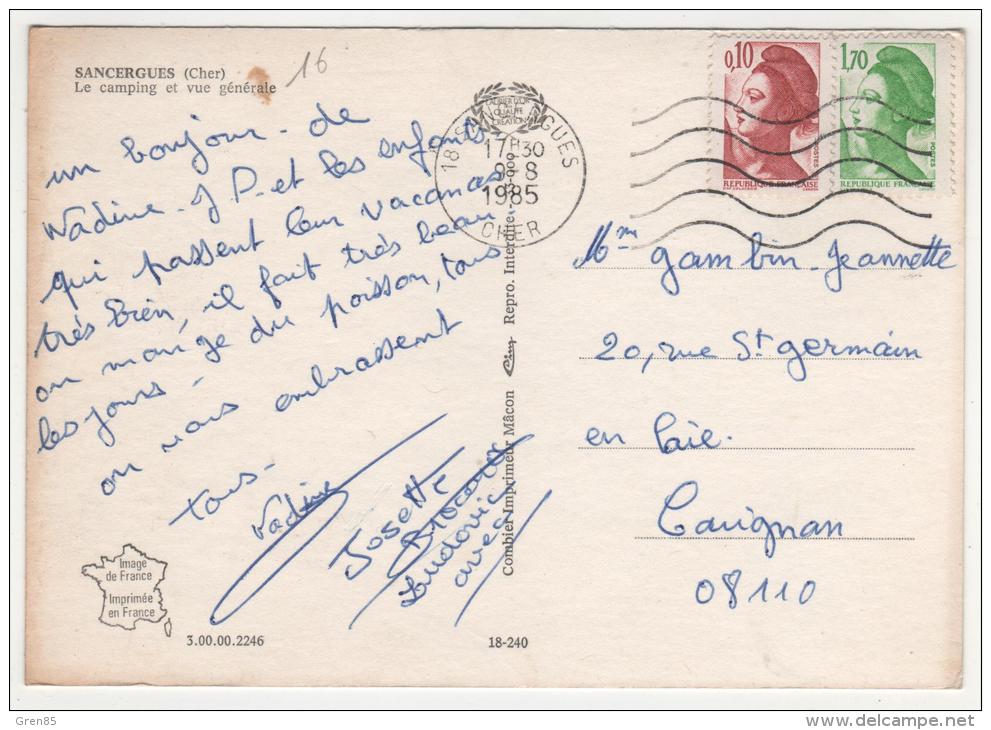 SANCERGUES (Cher)
Le camping et vue générale
16
un bonjour - de
Nadine - J P. et les enfants
qui passent leur vacances
très bien, il fait très beau
on mange du poisson, tous
les jours -
on vous embrassent
tous -
Nadine
Josette
Ludovic
avec
Image
de France
Imprimée
en France
3.00.00.2246
18-240
Combier Imprimeur Mâcon Cim Repro. Interdite
QUALITE
CREATION
18 SANCERGUES
17H30
8-8
1985
CHER
0,10
POSTES
RÉPUBLIQUE FRANÇAISE
1,70
POSTES
RÉPUBLIQUE FRANÇAISE
Mm gambin-Jeannette
20, rue St germain
en laie.
Carignan
08110
Gren85
www.delcampe.net